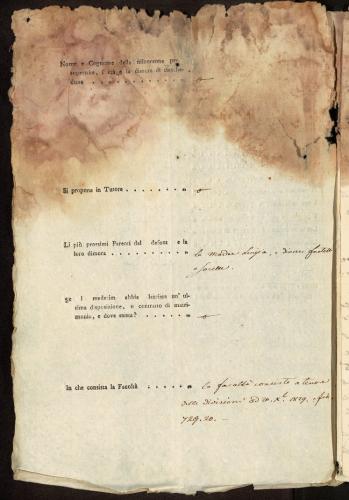 Nome e Cognome della minorenne pro
l'età, e la dimora di ciasche-
duna . . . . . . . . . . . . "
Si propone in Tutore . . . . . . . "
Li più prossimi Parenti del defunto e la
loro dimora . . . . . . . . . " la madre Luigia, e diversi fratelli
e sorelle.
Se i medesimi abbia lasciato un' ul-
tima disposizione, o contratto di matri-
monio, e dove esista? . . . . . . "
In che consista la Facoltà . . . . . " la facoltà consiste a tenore
delle divisioni 1829, fol.
729. 20. —